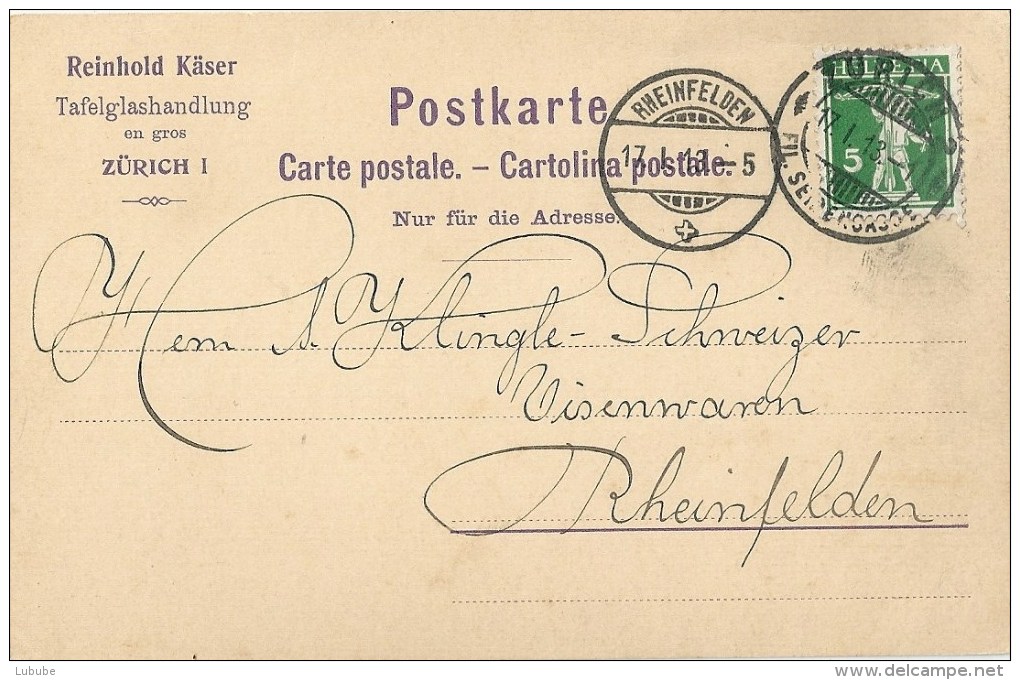 Reinhold Käser
Tafelglashandlung
en gros
ZÜRICH I
Postkarte
Carte postale. – Cartolina postale.
Nur für die Adresse.
RHEINFELDEN
17. I. 13. – 5
HELVETIA
5
ZÜRICH
17. I. 13. –
FIL. SEIDENGASSE
Herrn S. Klingle-Schweizer
Eisenwaren
Rheinfelden
Lubube
www.delcampe.net